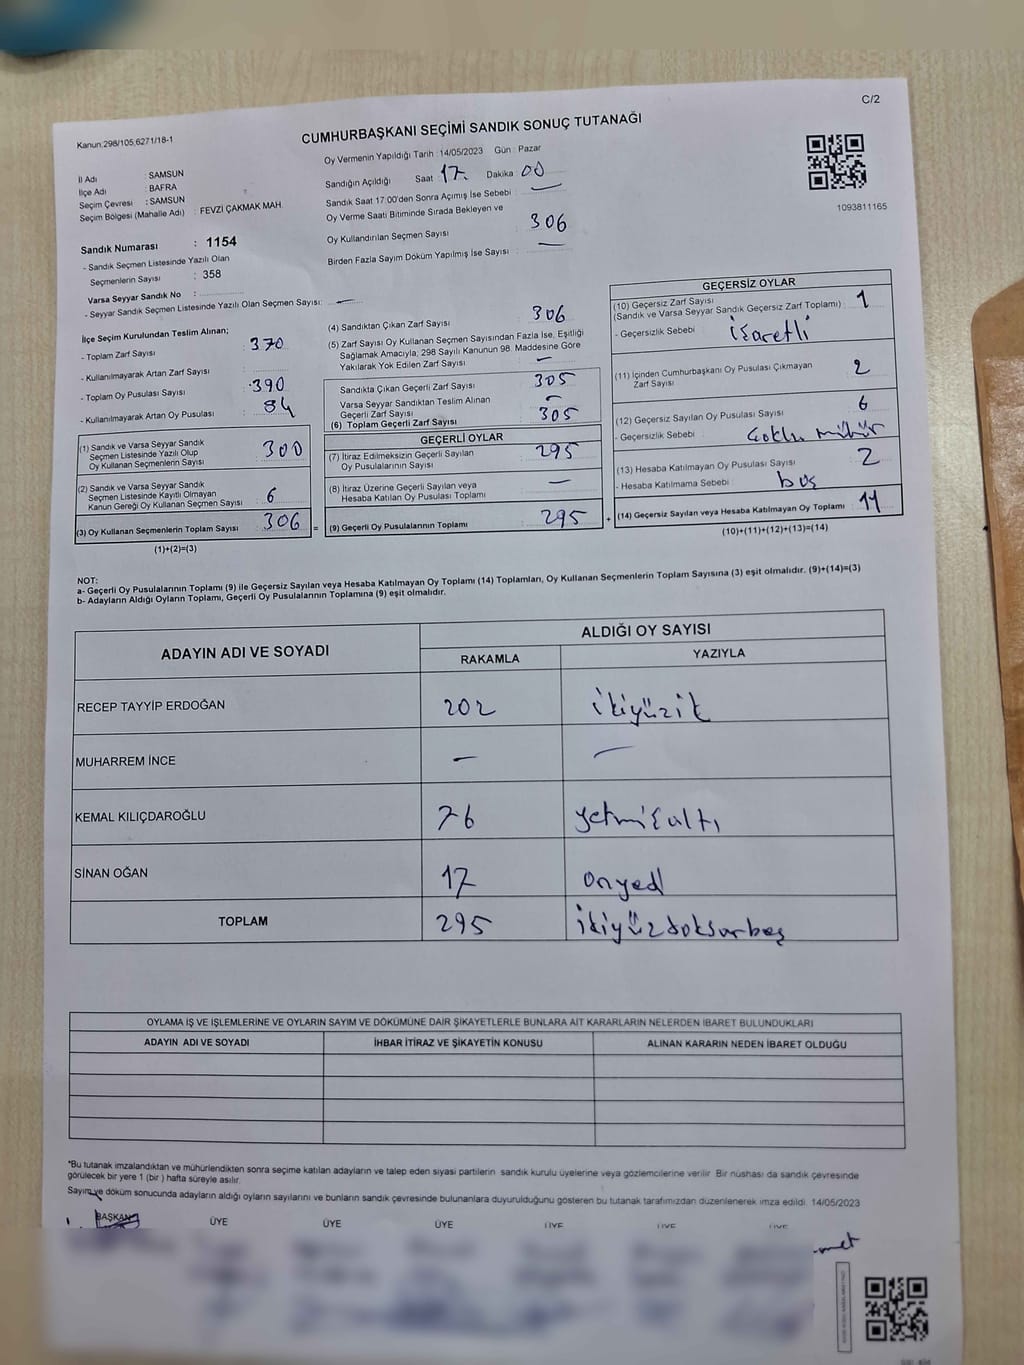 C/2
Kanun.298/105,6271/18-1
CUMHURBAŞKANI SEÇİMİ SANDIK SONUÇ TUTANAĞI
İl Adı : SAMSUN
İlçe Adı : BAFRA
Seçim Çevresi : SAMSUN
Seçim Bölgesi (Mahalle Adı) : FEVZİ ÇAKMAK MAH.
Oy Vermenin Yapıldığı Tarih : 14/05/2023 Gün : Pazar
Sandığın Açıldığı Saat 17. Dakika 00
Sandık Saat 17:00'den Sonra Açımış İse Sebebi : —
Oy Verme Saati Bitiminde Sırada Bekleyen ve
Oy Kullandırılan Seçmen Sayısı : 306
Birden Fazla Sayım Döküm Yapılmış İse Sayısı : —
1093811165
Sandık Numarası : 1154
- Sandık Seçmen Listesinde Yazılı Olan
Seçmenlerin Sayısı : 358
Varsa Seyyar Sandık No :
- Seyyar Sandık Seçmen Listesinde Yazılı Olan Seçmen Sayısı: —
İlçe Seçim Kurulundan Teslim Alınan;
- Toplam Zarf Sayısı : 370
- Kullanılmayarak Artan Zarf Sayısı :
- Toplam Oy Pusulası Sayısı : 390
- Kullanılmayarak Artan Oy Pusulası : 84
(1) Sandık ve Varsa Seyyar Sandık
Seçmen Listesinde Yazılı Olup
Oy Kullanan Seçmenlerin Sayısı : 300
(2) Sandık ve Varsa Seyyar Sandık
Seçmen Listesinde Kayıtlı Olmayan
Kanun Gereği Oy Kullanan Seçmen Sayısı : 6
(3) Oy Kullanan Seçmenlerin Toplam Sayısı : 306 =
(1)+(2)=(3)
(4) Sandıktan Çıkan Zarf Sayısı : 306
(5) Zarf Sayısı Oy Kullanan Seçmen Sayısından Fazla İse, Eşitliği
Sağlamak Amacıyla, 298 Sayılı Kanunun 98. Maddesine Göre
Yakılarak Yok Edilen Zarf Sayısı : —
Sandıkta Çıkan Geçerli Zarf Sayısı : 305
Varsa Seyyar Sandıktan Teslim Alınan
Geçerli Zarf Sayısı : —
(6) Toplam Geçerli Zarf Sayısı : 305
GEÇERLİ OYLAR
(7) İtiraz Edilmeksizin Geçerli Sayılan
Oy Pusulalarının Sayısı : 295
(8) İtiraz Üzerine Geçerli Sayılan veya
Hesaba Katılan Oy Pusulası Toplamı : —
(9) Geçerli Oy Pusulalarının Toplamı : 295 +
GEÇERSİZ OYLAR
(10) Geçersiz Zarf Sayısı
(Sandık ve Varsa Seyyar Sandık Geçersiz Zarf Toplamı) : 1
- Geçersizlik Sebebi : işaretli
(11) İçinden Cumhurbaşkanı Oy Pusulası Çıkmayan
Zarf Sayısı : 2
(12) Geçersiz Sayılan Oy Pusulası Sayısı : 6
- Geçersizlik Sebebi : Çoklu mühür
(13) Hesaba Katılmayan Oy Pusulası Sayısı : 2
- Hesaba Katılmama Sebebi : boş
(14) Geçersiz Sayılan veya Hesaba Katılmayan Oy Toplamı : 11
(10)+(11)+(12)+(13)=(14)
NOT:
a- Geçerli Oy Pusulalarının Toplamı (9) ile Geçersiz Sayılan veya Hesaba Katılmayan Oy Toplamı (14) Toplamları, Oy Kullanan Seçmenlerin Toplam Sayısına (3) eşit olmalıdır. (9)+(14)=(3)
b- Adayların Aldığı Oyların Toplamı, Geçerli Oy Pusulalarının Toplamına (9) eşit olmalıdır.
ADAYIN ADI VE SOYADI
ALDIĞI OY SAYISI
RAKAMLA YAZIYLA
RECEP TAYYİP ERDOĞAN 202 ikiyüzik
MUHARREM İNCE — —
KEMAL KILIÇDAROĞLU 76 yetmişaltı
SİNAN OĞAN 17 onyed
TOPLAM 295 ikiyüzdoksanbeş
OYLAMA İŞ VE İŞLEMLERİNE VE OYLARIN SAYIM VE DÖKÜMÜNE DAİR ŞİKAYETLERLE BUNLARA AİT KARARLARIN NELERDEN İBARET BULUNDUKLARI
ADAYIN ADI VE SOYADI İHBAR İTİRAZ VE ŞİKAYETİN KONUSU ALINAN KARARIN NEDEN İBARET OLDUĞU
*Bu tutanak imzalandıktan ve mühürlendikten sonra seçime katılan adayların ve talep eden siyasi partilerin sandık kurulu üyelerine veya gözlemcilerine verilir. Bir nüshası da sandık çevresinde
görülecek bir yere 1 (bir ) hafta süreyle asılır.
Sayım ve döküm sonucunda adayların aldığı oyların sayılarını ve bunların sandık çevresinde bulunanlara duyurulduğunu gösteren bu tutanak tarafımızdan düzenlenerek imza edildi. 14/05/2023
BAŞKAN ÜYE ÜYE ÜYE ÜYE ÜYE ÜYE